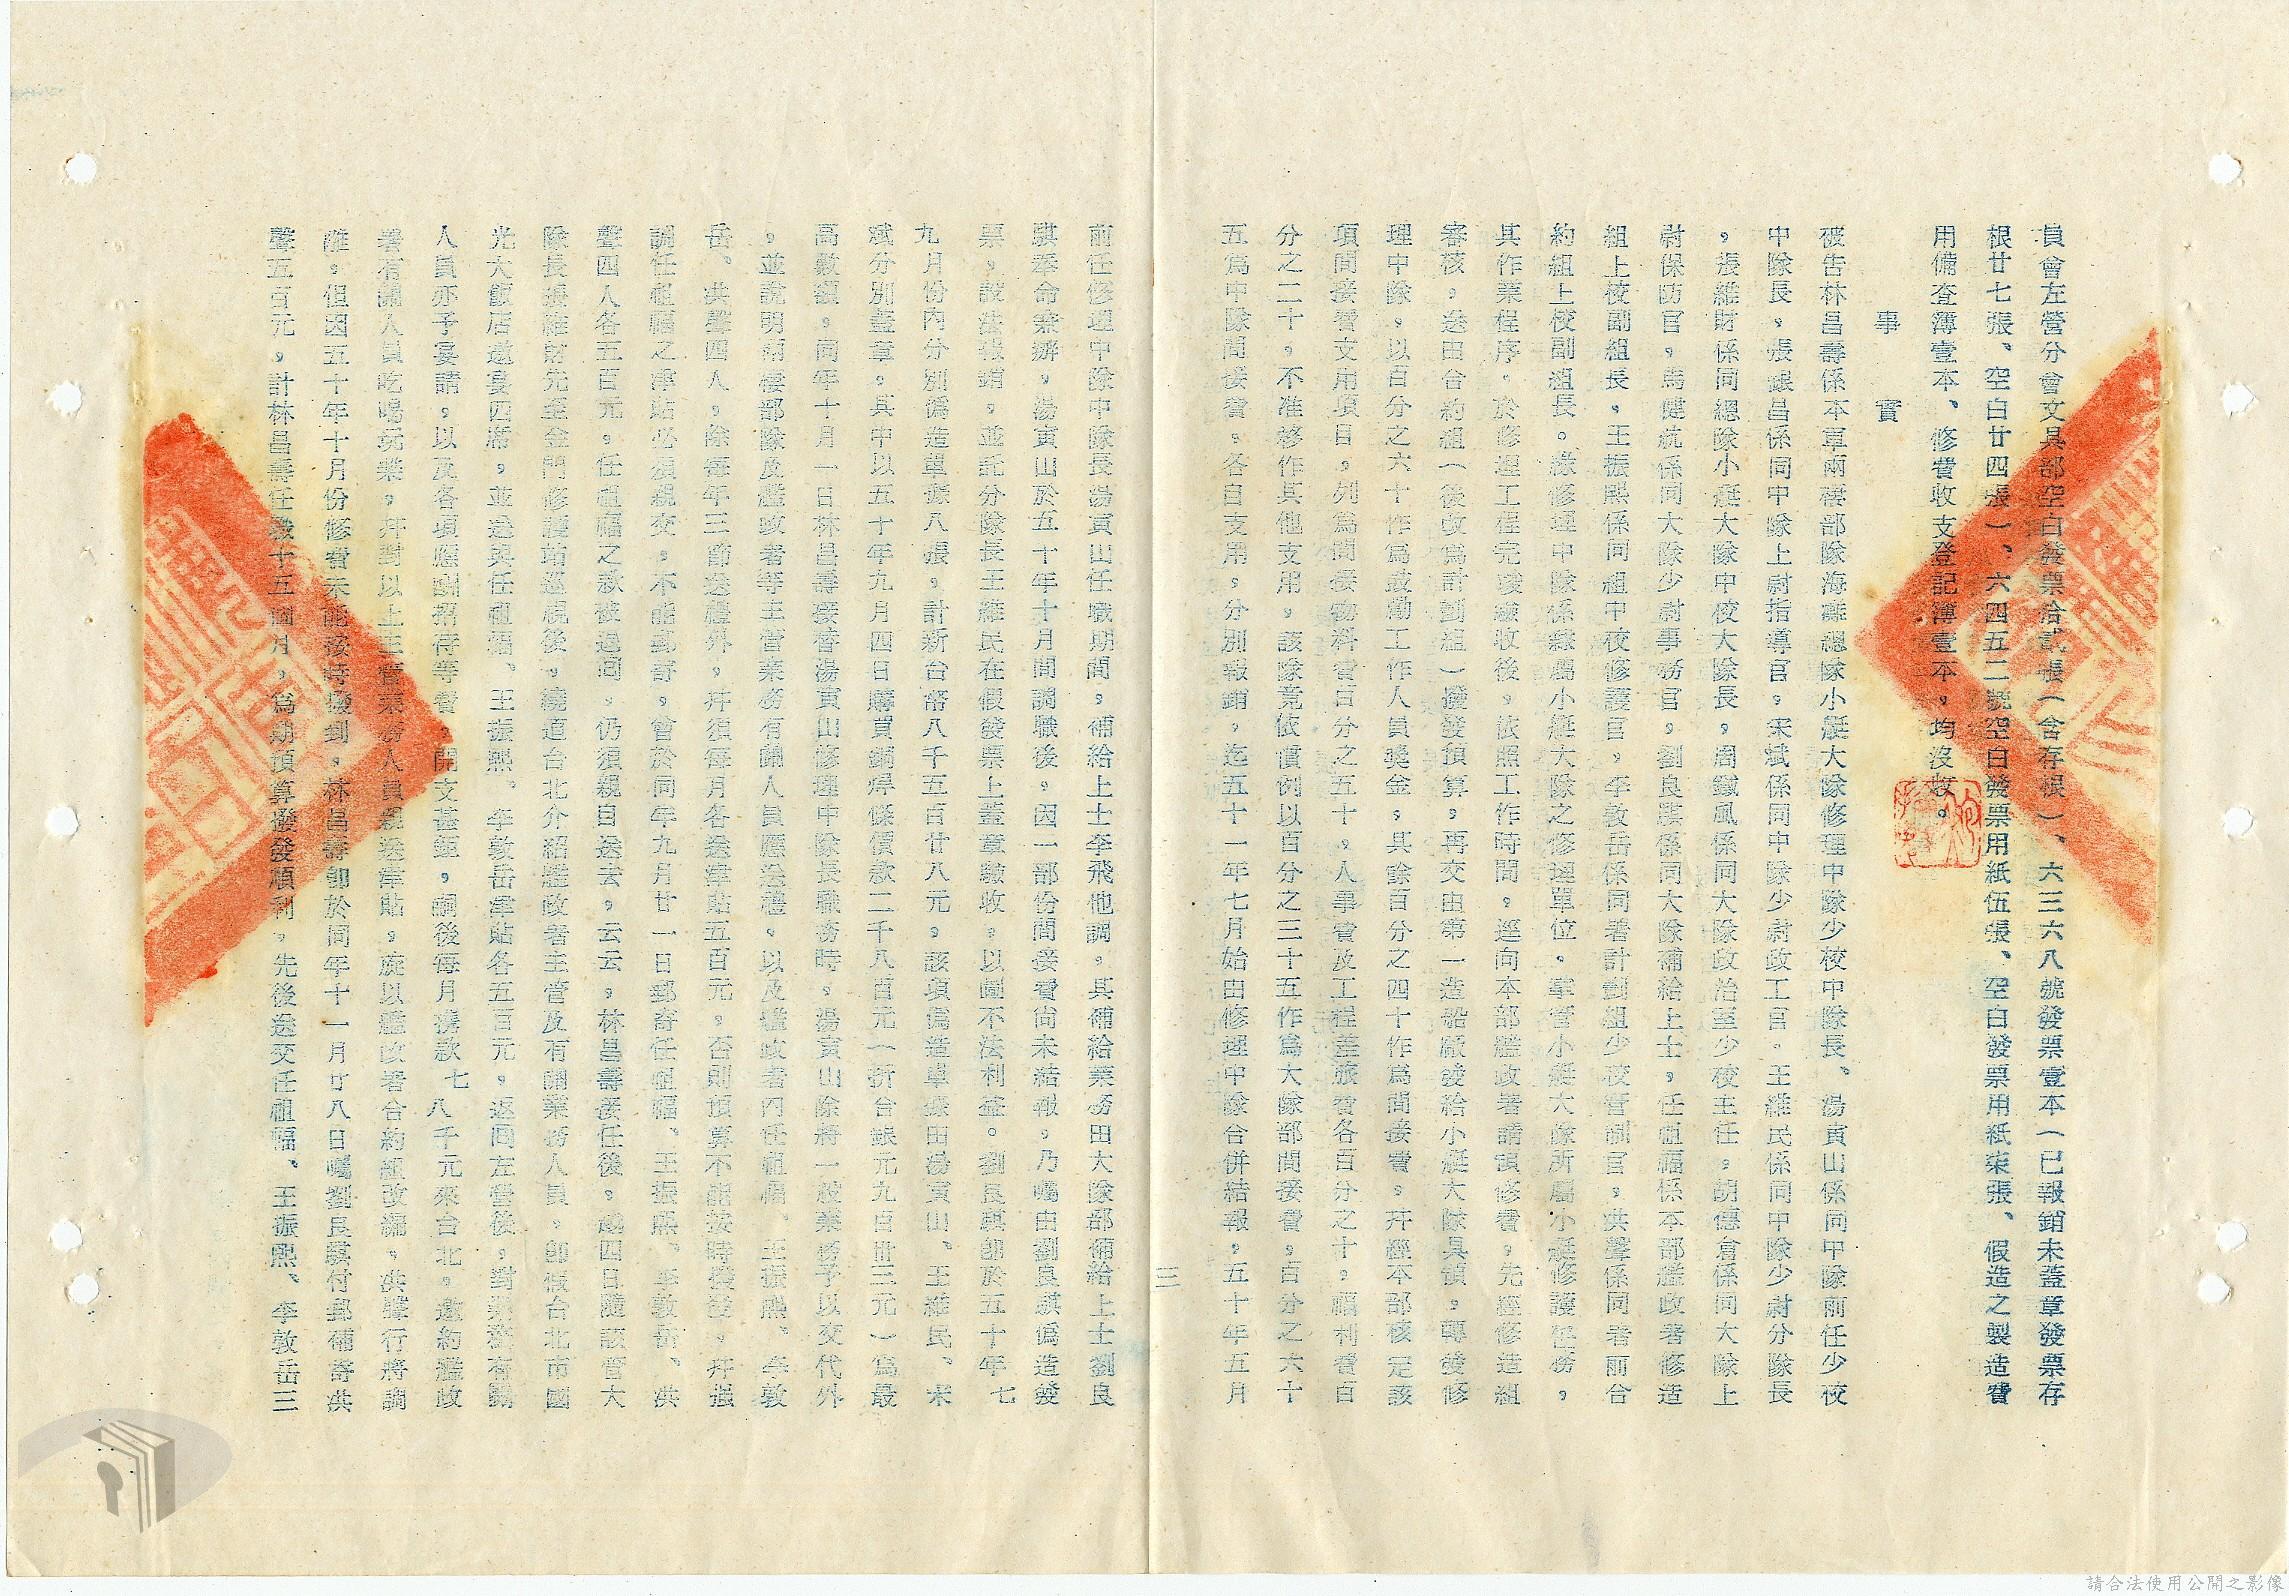 員會左營分會文具部空白發票拾貳張(含存根)、六三六八號發票壹本(已報銷未蓋章發票存
根廿七張、空白廿四張)、六四五二號空白發票用紙伍張、空白發票用紙柒張、假造之製造費
用備查簿壹本、修費收支登記簿壹本,均沒收。
事實
被告林昌壽係本軍兩棲部隊海灘總隊小艇大隊修理中隊少校中隊長、湯寅山係同中隊前任少校
中隊長,張銀昌係同中隊上尉指導官,宋斌係同中隊少尉政工官,王維民係同中隊少尉分隊長
,張維財係同總隊小艇大隊中校大隊長,周鐵風係同大隊政治室少校主任,胡德倉係同大隊上
尉保防官,馬健航係同大隊少尉事務官,劉良騏係同大隊補給上士,任祖福係本部艦政署修造
組上校副組長,王振熙係同組中校修護官,李敦岳係同署計劃組少校管制官,洪聲係同署前合
約組上校副組長。緣修理中隊係隸屬小艇大隊之修理單位,掌管小艇大隊所屬小艇修護任務,
其作業程序,於修理工程完竣驗收後,依照工作時間,逕向本部艦政署請領修費,先經修造組
審核,送由合約組(後改為計劃組)撥發預算,再交由第一造船廠發給小艇大隊具領,轉發修
理中隊,以百分之六十作為鼓勵工作人員獎金,其餘百分之四十作為間接費,并經本部核定該
項間接費支用項目,列為間接物料費百分之五十,人事費及工程差旅費各百分之十,福利費百
分之二十,不准移作其他支用,該隊竟依慣例以百分之三十五作為大隊部間接費,百分之六十
五為中隊間接費,各自支用,分別報銷,迄五十一年七月始由修理中隊合併結報,五十年五月
三
前任修理中隊中隊長湯寅山任職期間,補給上士李飛他調,其補給業務由大隊部補給上士劉良
騏奉命兼辦,湯寅山於五十年十月間調職後,因一部份間接費尚未結報,乃囑由劉良騏偽造發
票,設法報銷,並託分隊長王維民在假發票上蓋章驗收,以圖不法利益。劉良騏即於五十年七
九月份內分別偽造單據八張,計新台幣八千五百廿八元,該項偽造單據由湯寅山、王維民、宋
斌分別蓋章,其中以五十年九月四日購買銅焊條價款二千八百元(折合銀元九百卅三元)為最
高數額,同年十月一日林昌壽接替湯寅山修理中隊長職務時,湯寅山除將一般業務予以交代外
,並說明兩棲部隊及艦政署等主管業務有關人員應送禮,以及艦政署內任祖福、王振熙、李敦
岳、洪聲四人,除每年三節送禮外,并須每月各送津貼五百元,否則預算不能按時撥發,并強
調任祖福之津貼必須親交,不能郵寄,曾於同年九月廿一日郵寄任祖福、王振熙、李敦岳、洪
聲四人各五百元,任祖福之款被退回,仍須親自送去,云云,林昌壽接任後,越四日隨該管大
隊長張維財先至金門修護站巡視後,繞道台北介紹艦政署主管及有關業務人員,即假台北市國
光大飯店邀宴四席,並送與任祖福、王振熙、李敦岳津貼各五百元,返回左營後,對業務有關
人員亦予宴請,以及各項應酬招待等費,開支甚鉅,嗣後每月攜款七八千元來台北,邀約艦政
署有關人員吃喝玩樂,并對以上主管業務人員親送津貼,旋以艦政署合約組改編,洪聲行將調
離,但因五十年十月份修費未能按時撥到,林昌壽即於同年十一月廿八日囑劉良騏付郵補寄洪
聲五百元,計林昌壽任職十五個月,為期預算撥發順利,先後送交任祖福、王振熙、李敦岳三
請合法使用公開之影像